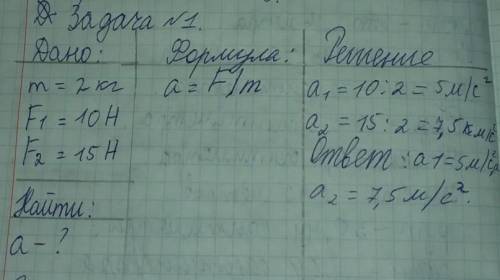 Задача №1.
Дано:
m = 2 кг
F1 = 10Н
F2 = 15Н
Найти:
a - ?
Формула:
a = F/m
Решение
a1 = 10 : 2 = 5 м/с²
a2 = 15 : 2 = 7,5 км/с²
Ответ : a1 = 5 м/с²,
a2 = 7,5 м/с².